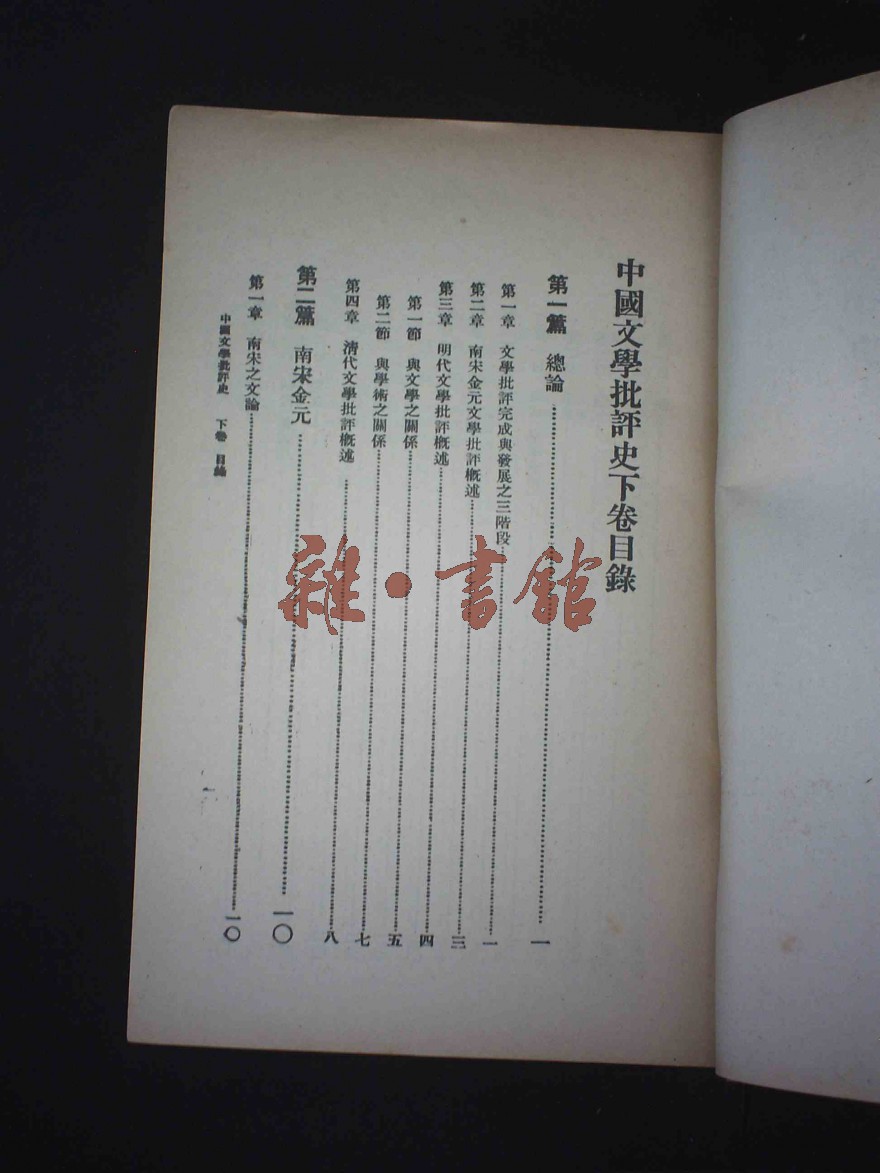 中國文學批評史下卷目錄
第一篇 總論……一
第一章 文學批評完成與發展之三階段……一
第二章 南宋金元文學批評概述……三
第三章 明代文學批評概述……四
第一節 與文學之關係……五
第二節 與學術之關係……七
第四章 清代文學批評概述……八
第二篇 南宋金元……一〇
第一章 南宋之文論……一〇
中國文學批評史 下卷 目錄
一
雜·書館